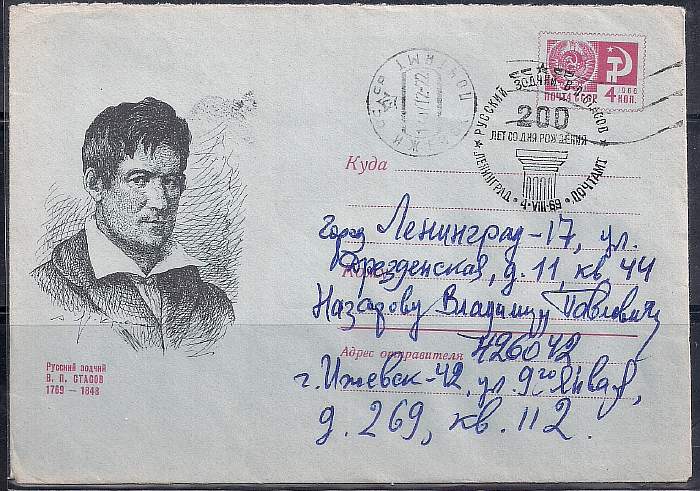 ПОЧТА СССР 1966 4 КОП.
РУССКИЙ ЗОДЧИЙ В.П.СТАСОВ
200
ЛЕТ СО ДНЯ РОЖДЕНИЯ
ЛЕНИНГРАД • 4-VIII-69 • ПОЧТАМТ
ПОЧТАМТ
Куда
Город Ленинград-17, ул.
Дрезденская, д. 11, кв. 44
Кому
Назадову Владимиру Павловичу
Адрес отправителя 426042
г. Ижевск-42, ул. 9го Января,
д. 269, кв. 112.
Русский зодчий
В. П. СТАСОВ
1769 — 1848